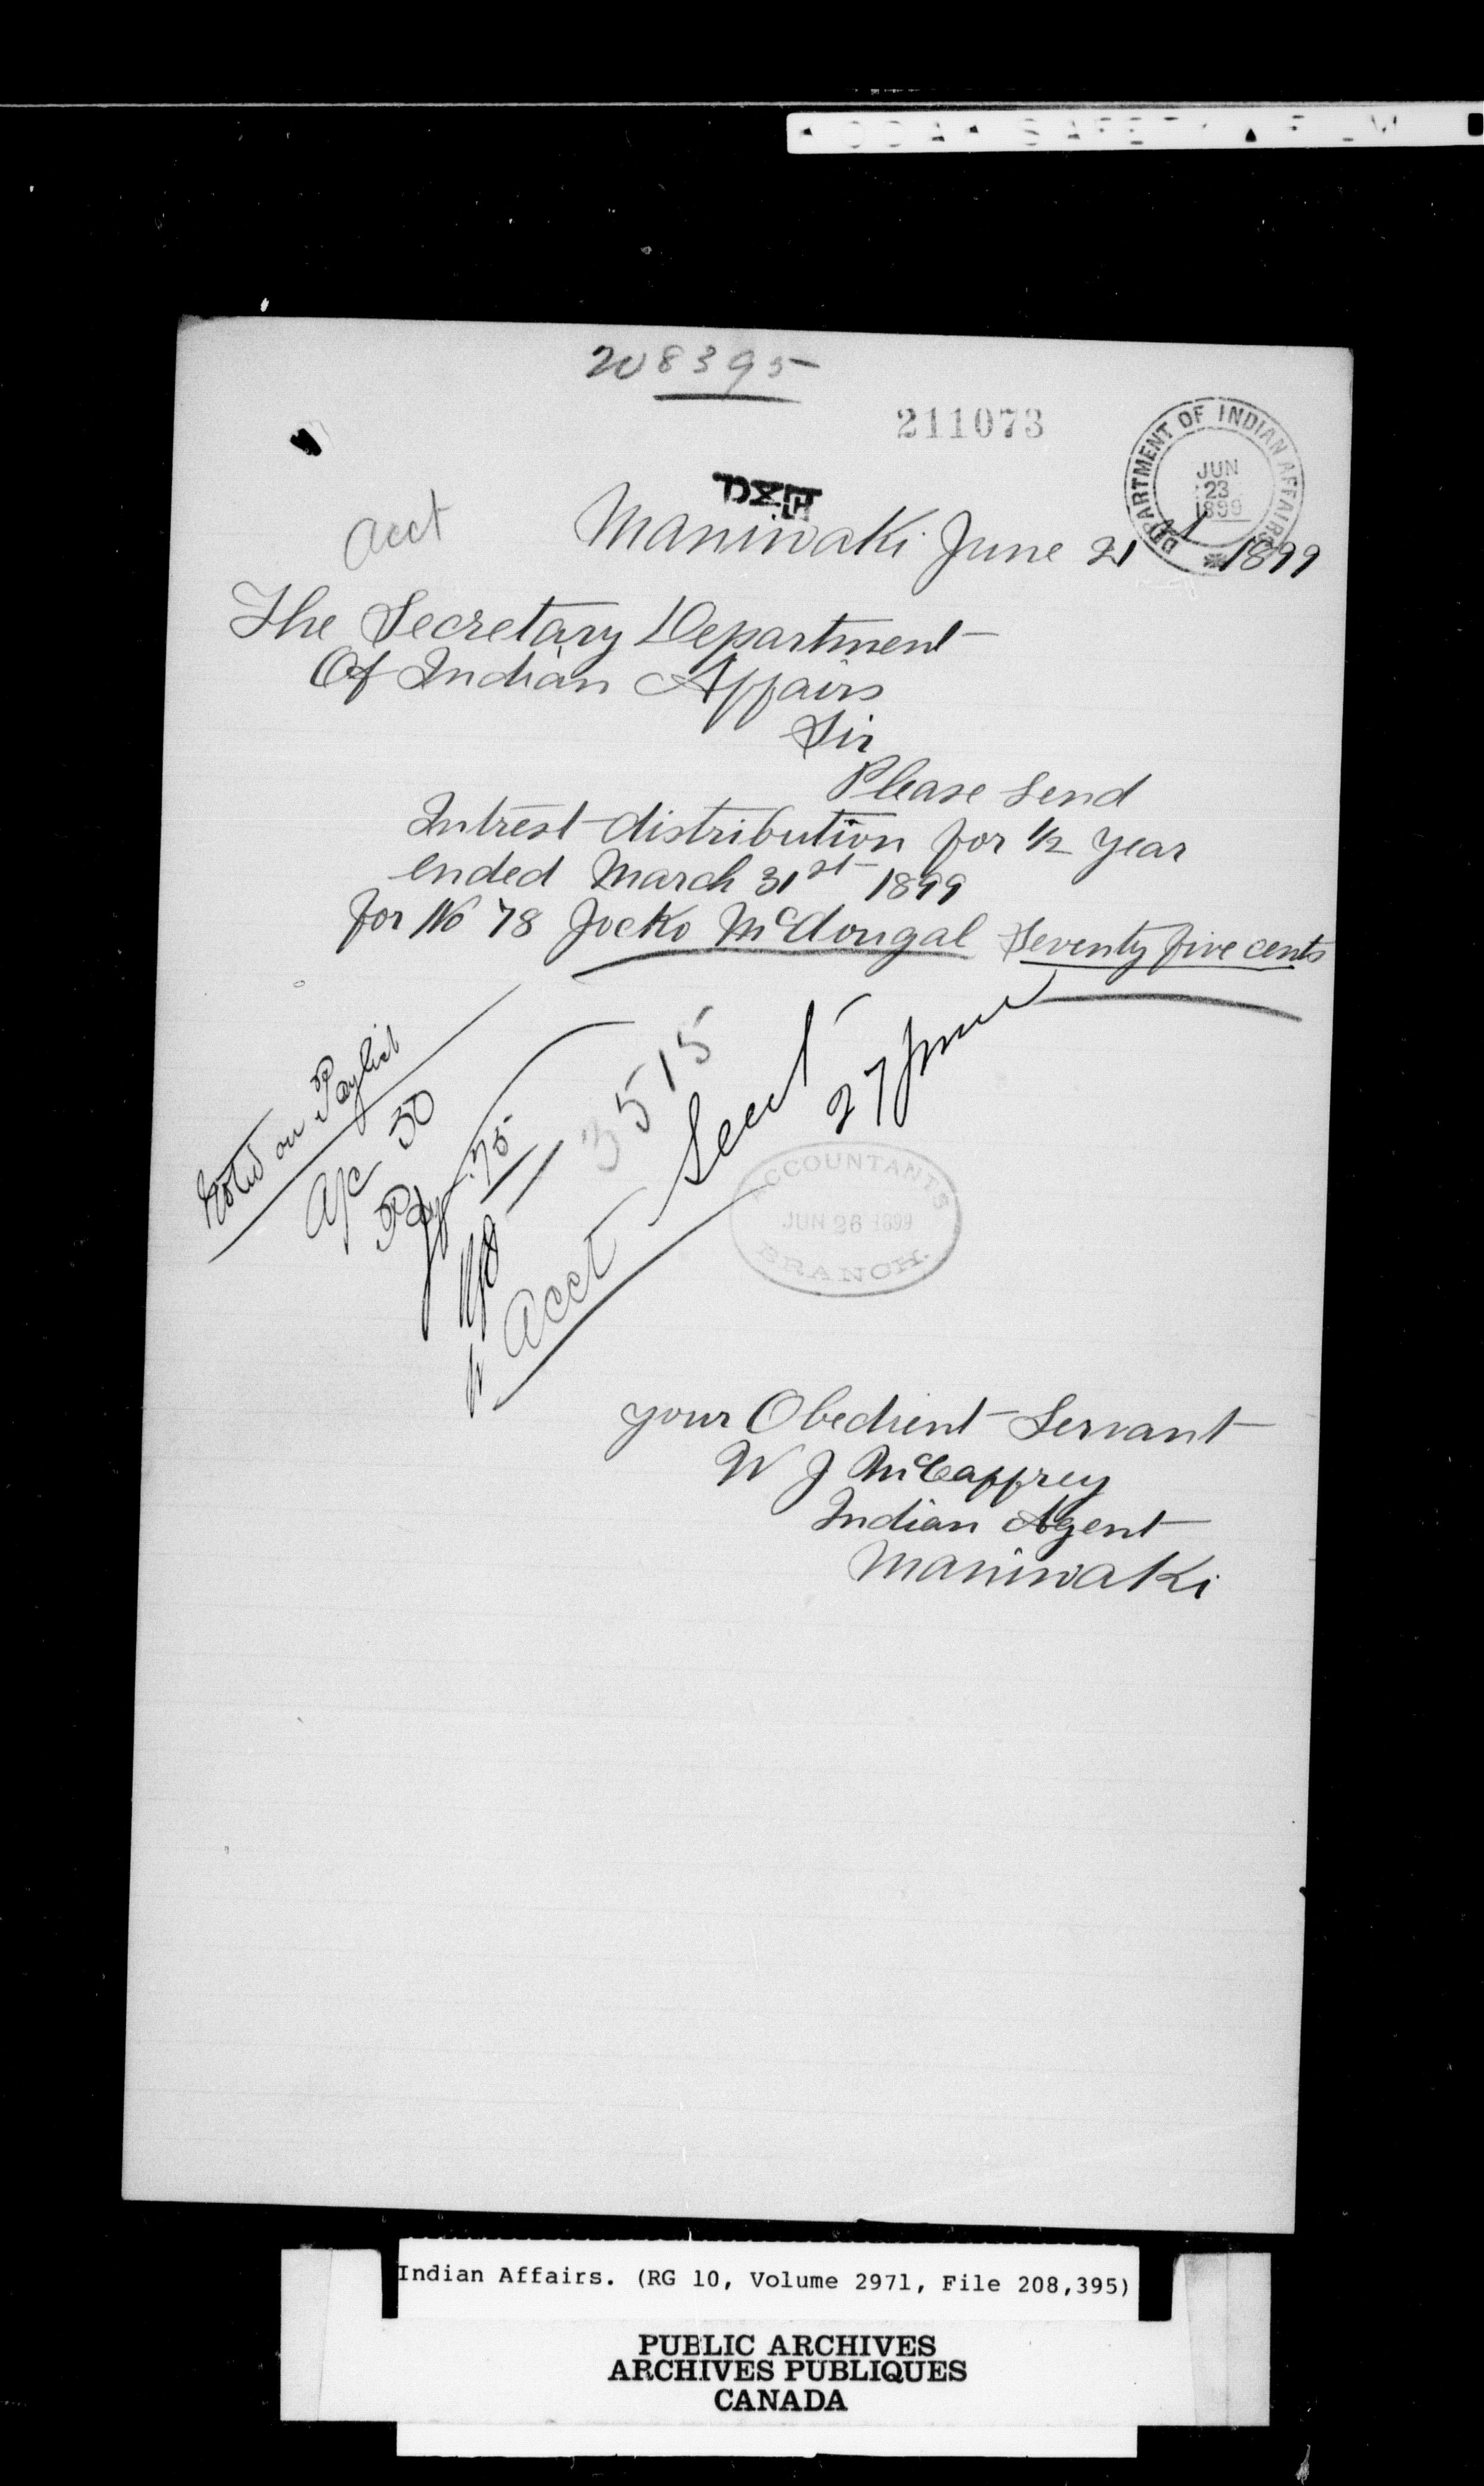 208395
211073
DEPARTMENT OF INDIAN AFFAIRS
JUN
23
1899
acct
Maniwaki June 21 1899
The Secretary Department
Of Indian Affairs
Sir
Please Send
Intrest distribution for 1/2 year
ended March 31st 1899
for No 78 Jocko McDougal Seventy five cents
Noted on Paylist
a/c 50
Pay .75
3515
acct
27 June
ACCOUNTANTS
JUN 26 1899
BRANCH.
your Obedient Servant
W J McCaffrey
Indian Agent
Maniwaki
Indian Affairs. (RG 10, Volume 2971, File 208,395)
PUBLIC ARCHIVES
ARCHIVES PUBLIQUES
CANADA